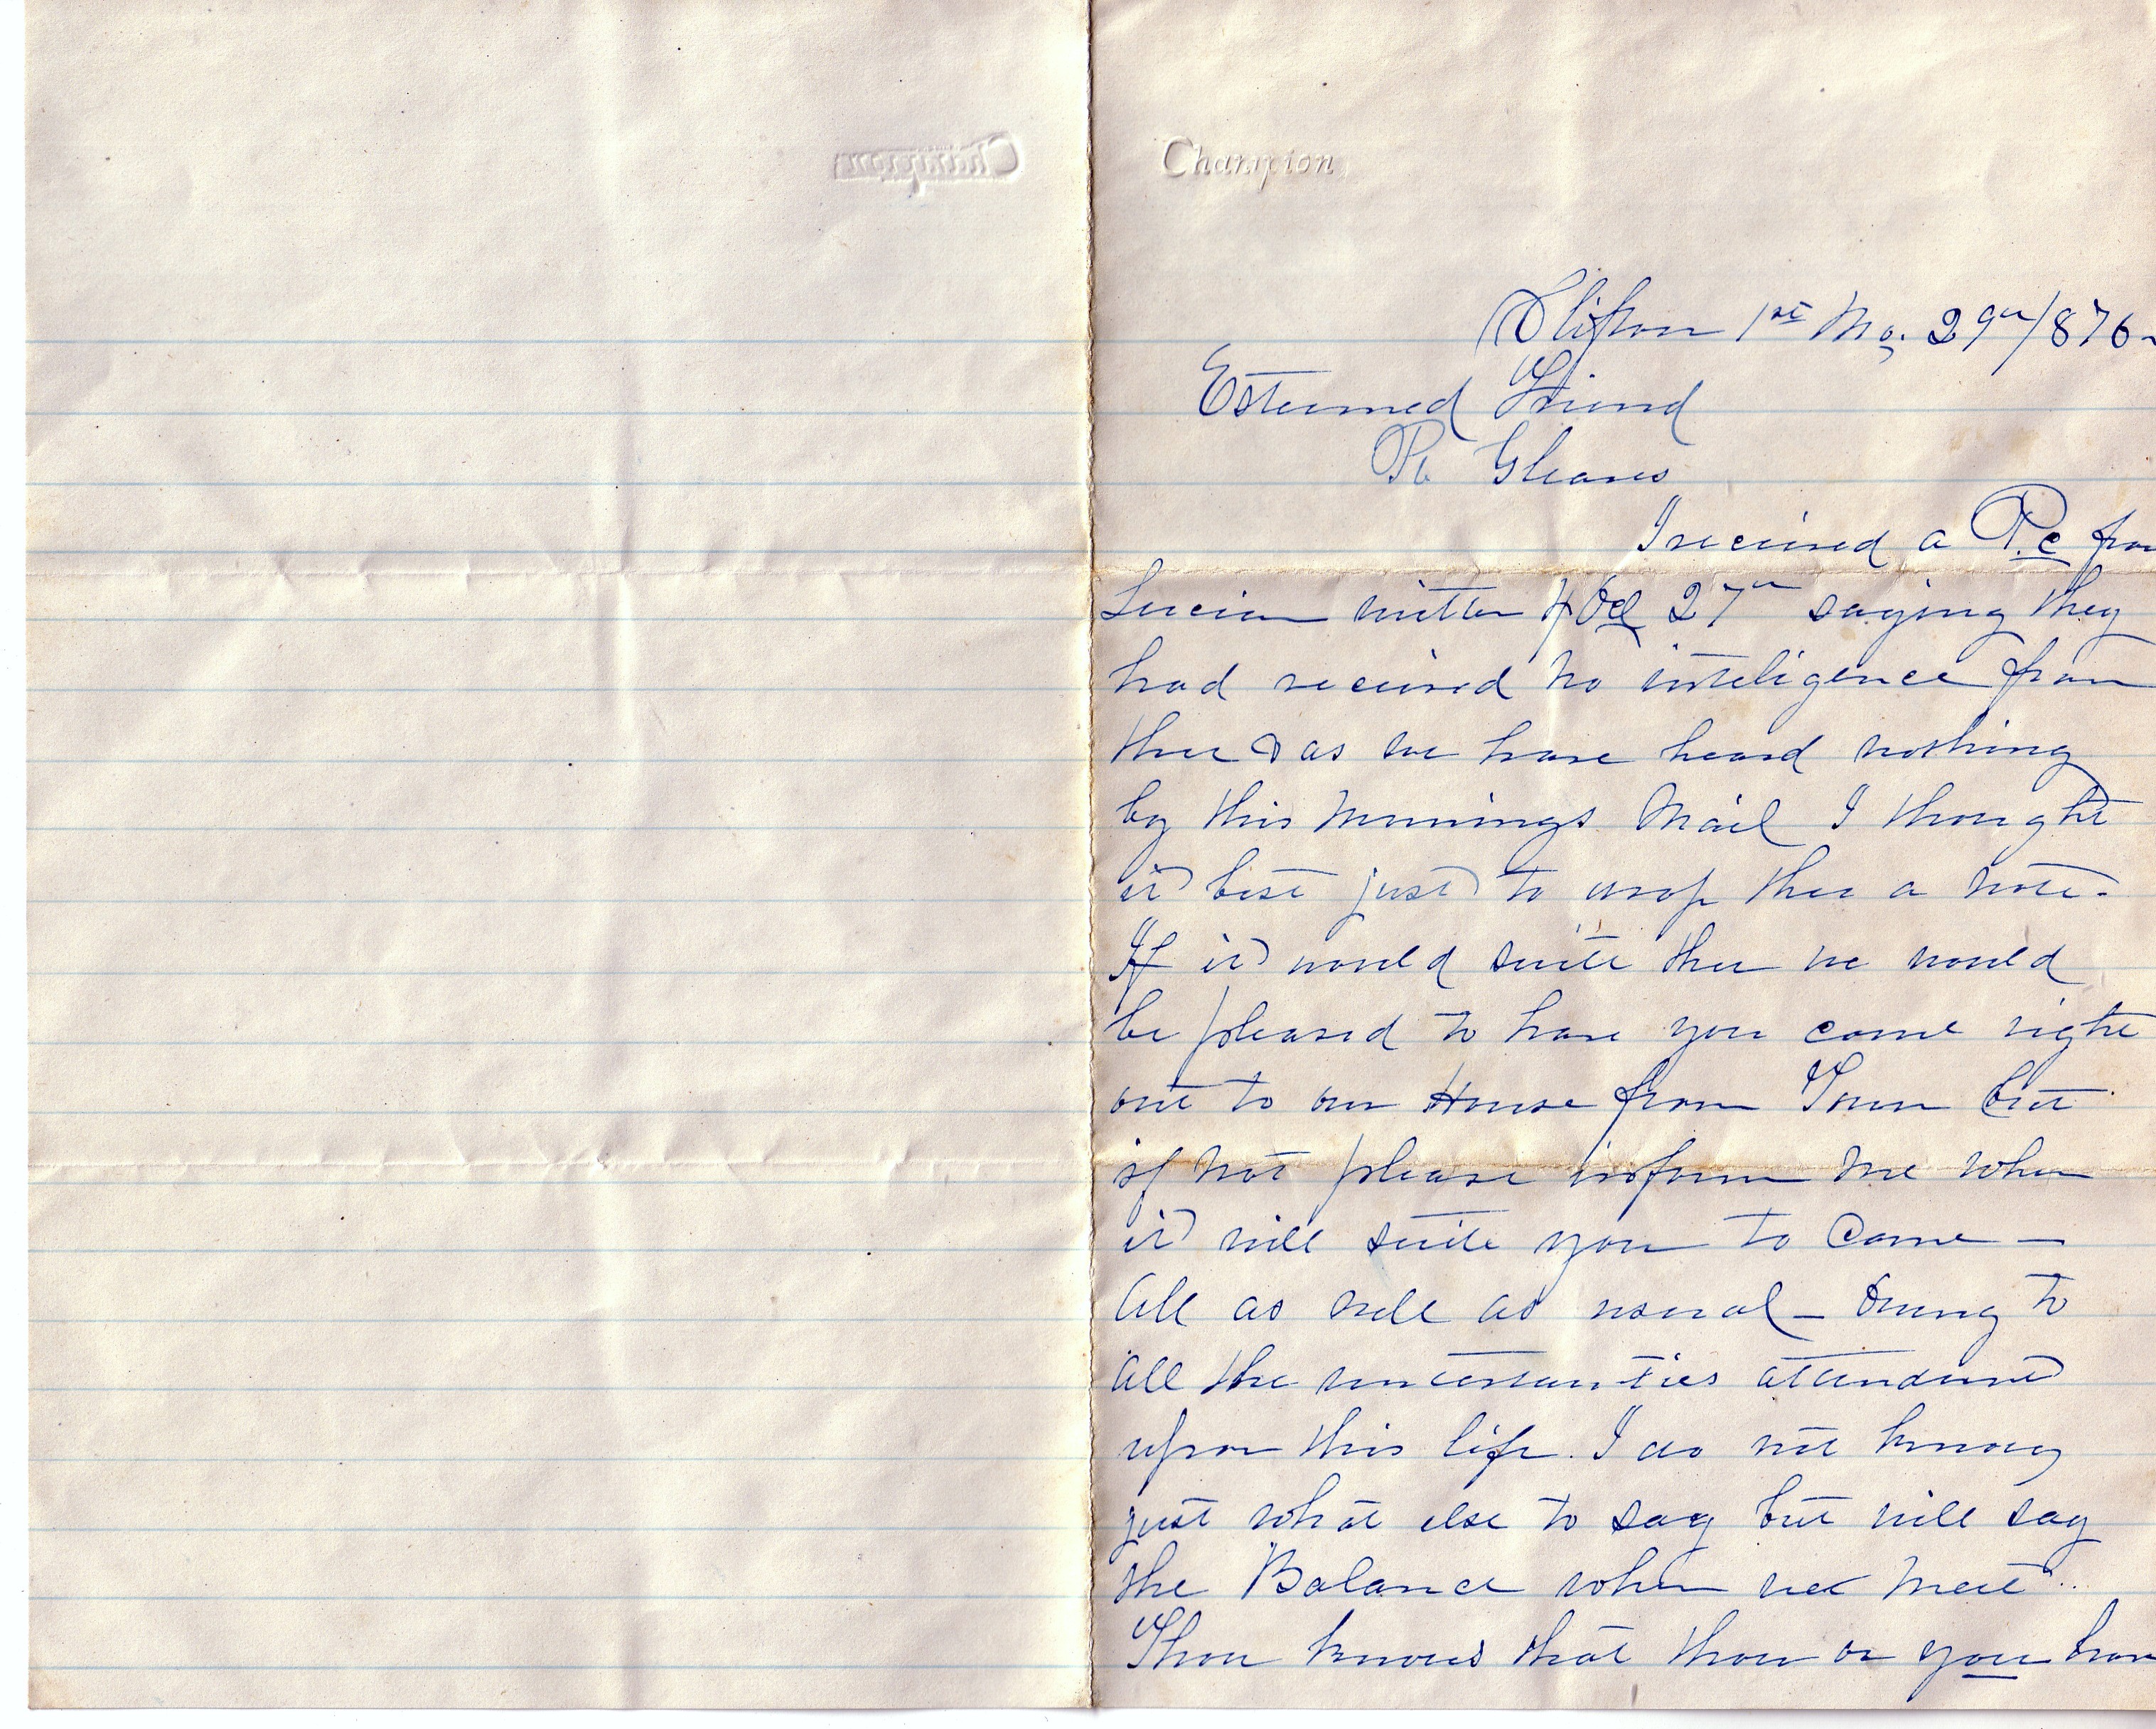 Champion
Clifton 1st Mo. 29th/876-
Esteemed Friend
R Gleaves
I received a P.c from
Lucien written 27th saying they
had received no inteligence from
thee & as we have heard nothing
by this mornings Mail I thought
it best just to drop thee a note.
If it would suite thee we would
be pleased to have you come right
out to our House from Town but
if not please inform me when
it will suite you to Come —
All as well as usual — Owing to
all the uncertainties attendant
upon this life. I do not know
just what else to say but will say
the Balance when we meet..
Thou knows that thou or you have